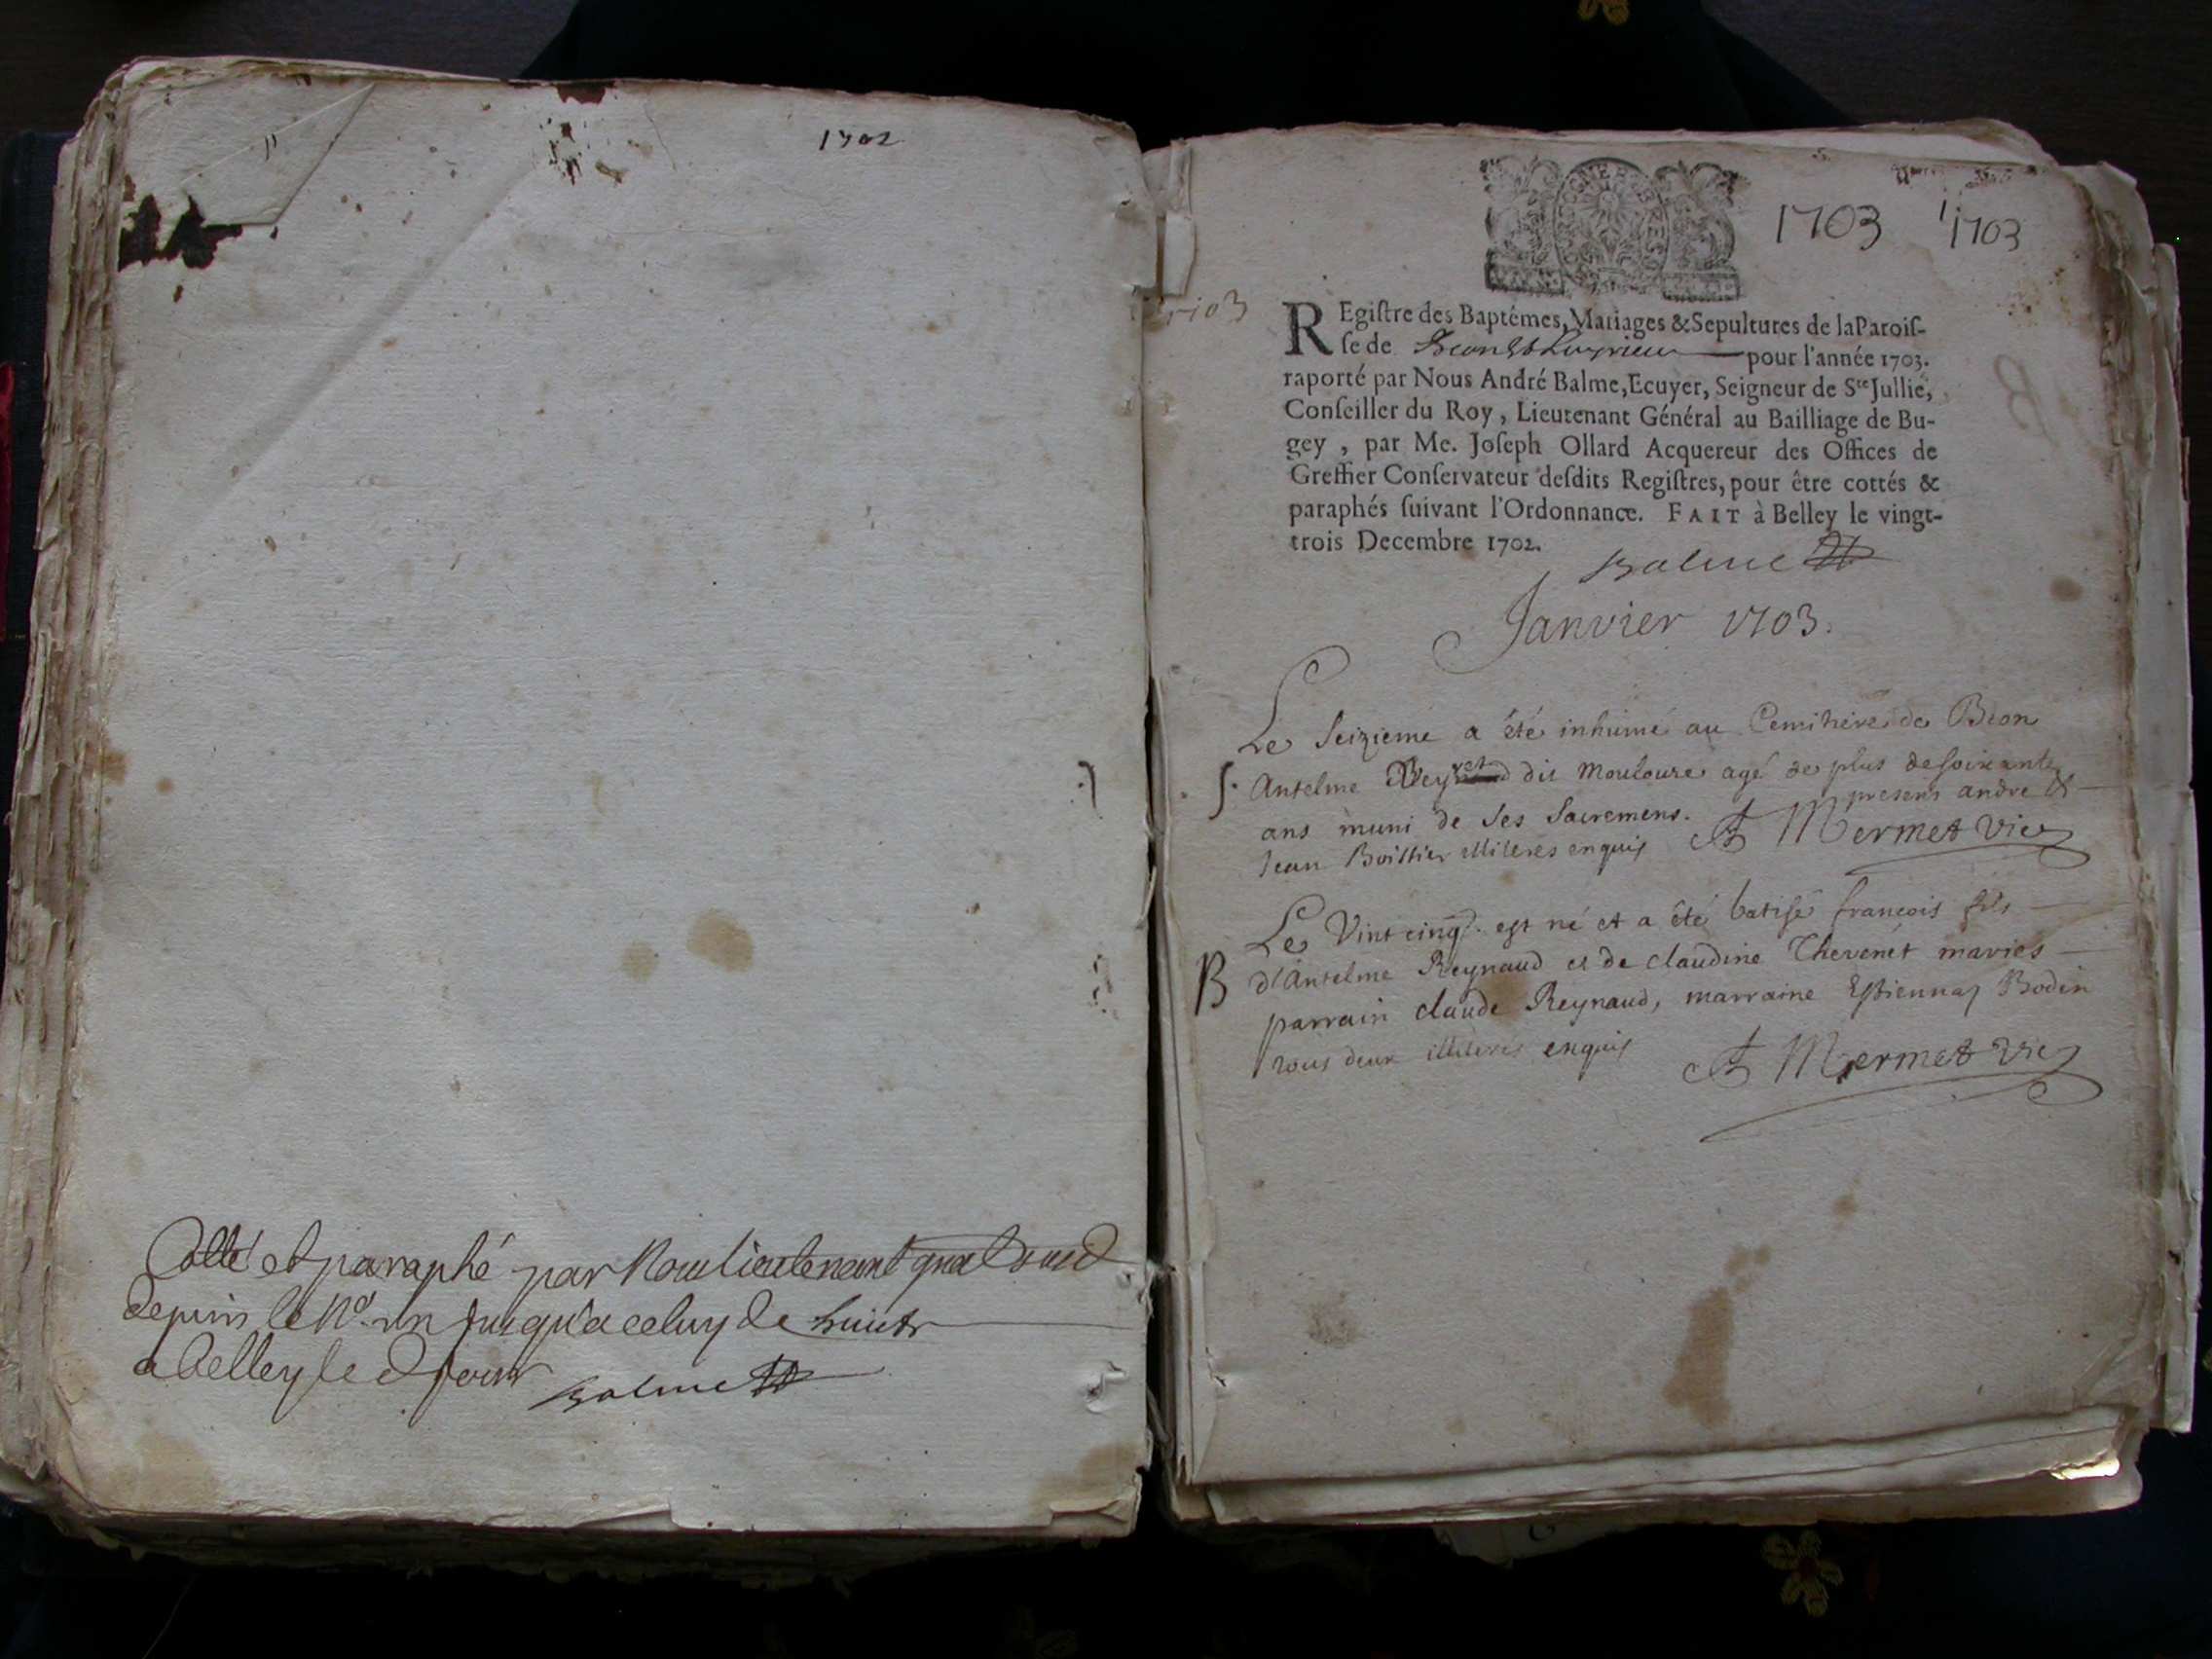 1702
Cotté et paraphé par Nous lieutenant gnal susd
depuis le No. un jusqu'a celuy de huict
a belley le d jour Balme
1703 1 1703
1703
REgistre des Baptêmes, Mariages & Sepultures de la Parois-
se de Beon & Luyrieu pour l'année 1703.
raporté par Nous André Balme, Ecuyer, Seigneur de Ste Jullie,
Conseiller du Roy, Lieutenant Général au Bailliage de Bu-
gey, par Me. Joseph Ollard Acquereur des Offices de
Greffier Conservateur desdits Registres, pour être cottés &
paraphés suivant l'Ordonnance. FAIT à Belley le vingt-
trois Decembre 1702.
Balme
Janvier 1703.
Le Seizieme a été inhumé au Cemitiere de Béon
S. Antelme dit Mouloure agé de plus de soixante
ans muni de ses Sacremens. presens andre &
Jean Boissier illiteres enquis A Mermet vic
Le Vint cinq. est né et a été batisé francois fils
B d'Antelme Reynaud et de claudine Thevenet mariés
parrain claude Reynaud, marraine Estienna Bodin
tous deux illiteres enquis A Mermet vic